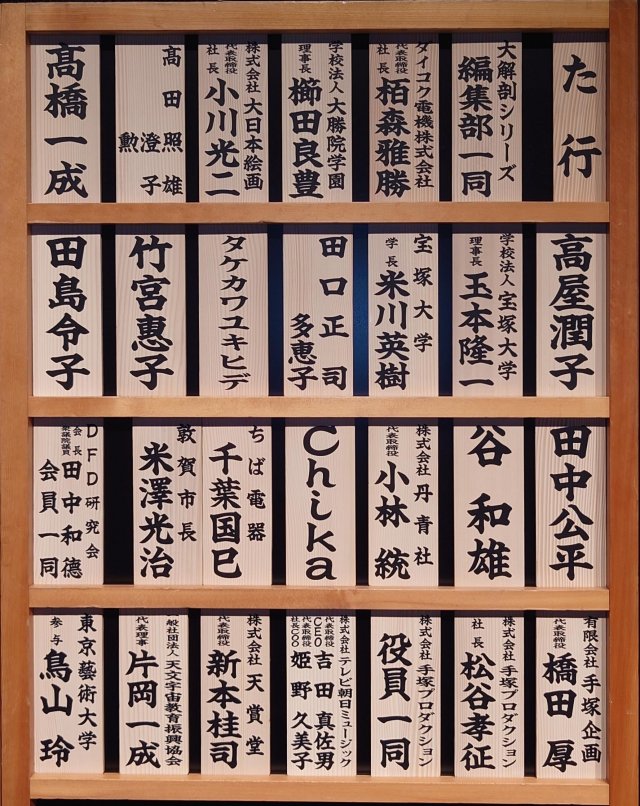 た行
大解剖シリーズ
編集部一同
ダイコク電機株式会社
代表取締役
社長
栢森雅勝
学校法人 大勝院学園
理事長
櫛田良豊
株式会社 大日本絵画
代表取締役
社長
小川光二
高田照雄
澄子
勲
高橋一成
高屋潤子
学校法人 宝塚大学
理事長
玉本隆一
宝塚大学
学長
米川英樹
田口正司
多惠子
タケカワユキヒデ
竹宮惠子
田島令子
田中公平
谷和雄
株式会社 丹青社
代表取締役
小林統
Chika
ちば電器
千葉国巳
敦賀市長
米澤光治
DFD研究会
会長
衆議院議員
田中和德
会員一同
有限会社 手塚企画
代表取締役
橋田厚
株式会社 手塚プロダクション
社長
松谷孝征
株式会社 手塚プロダクション
役員一同
株式会社 テレビ朝日ミュージック
代表取締役
CEO
吉田真佐男
代表取締役
社長COO
姫野久美子
株式会社 天賞堂
代表取締役
新本桂司
一般社団法人 天文宇宙教育振興協会
代表理事
片岡一成
東京藝術大学
参与
鳥山玲